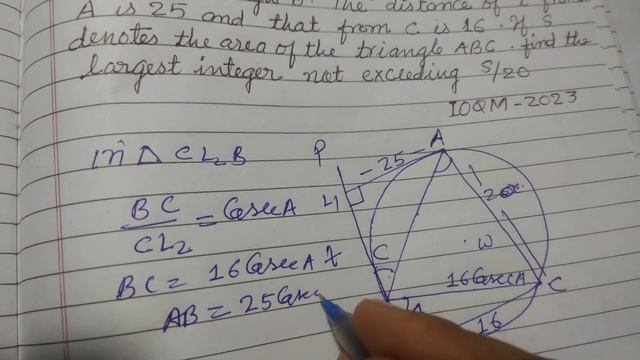 The distance of
A is 25 and that from C is 16. If S
denotes the area of the triangle ABC. find the
largest integer not exceeding S/20
IOQM-2023
in Δ CL₂B
BC/CL₂ = CosecA
BC = 16CosecA
AB = 25Cosec
P
-25-
A
L1
C
20
.W
16CosecA
C
16